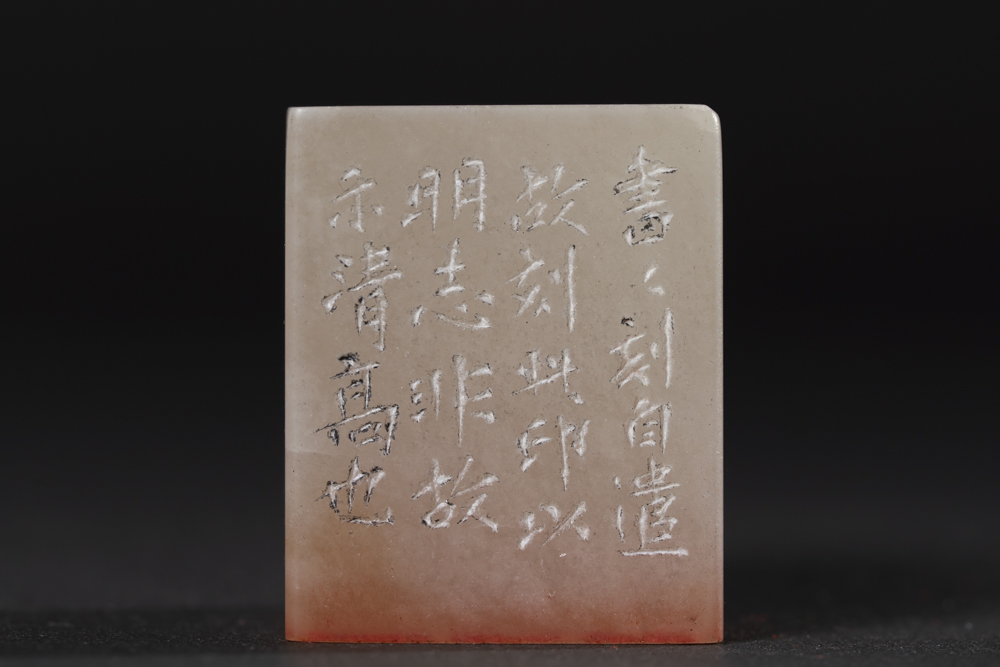 書〻刻自遣
故刻此印以
明志非故
示清高也